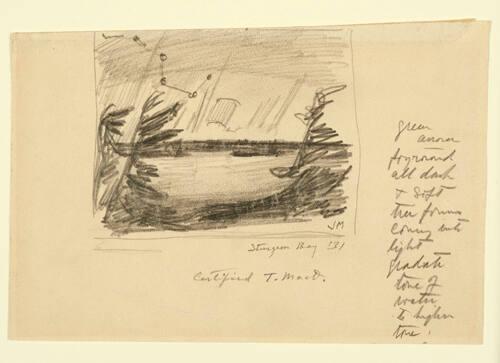 JM
Sturgeon Bay '31
Certified T. MacD.
green
across
foreground
all dark
+ soft
tree forms
coming into
light
gradate
tone of
water
to higher
tone.